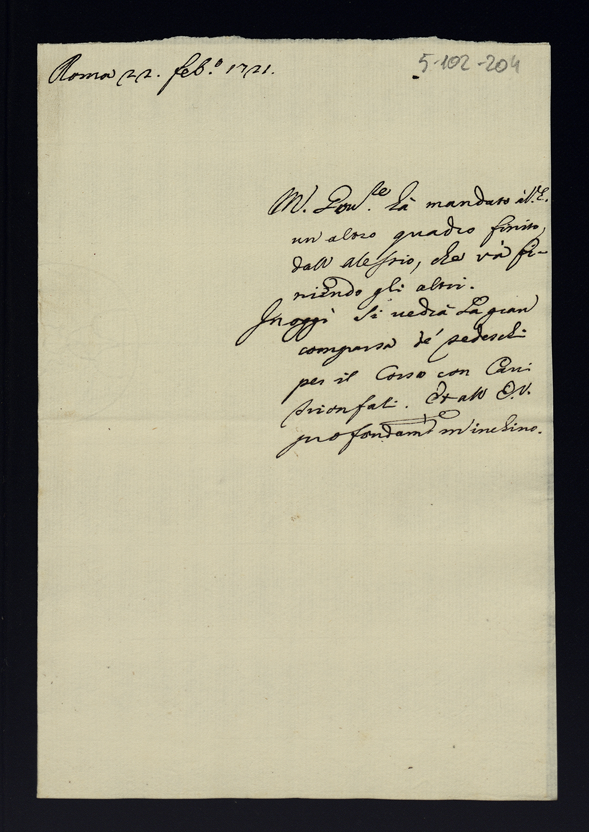 Roma 22. feb.º 1721.
5-102-204
M.r hà mandato all'E.
un altro quadro finito
dall Alessio, che và fi-
niendo gli altri.
In oggi si vedrà la gran
comparsa de' Tedeschi
per il Corso con Carri
trionfali. Et all E.V.
profondam.e m'inchino.